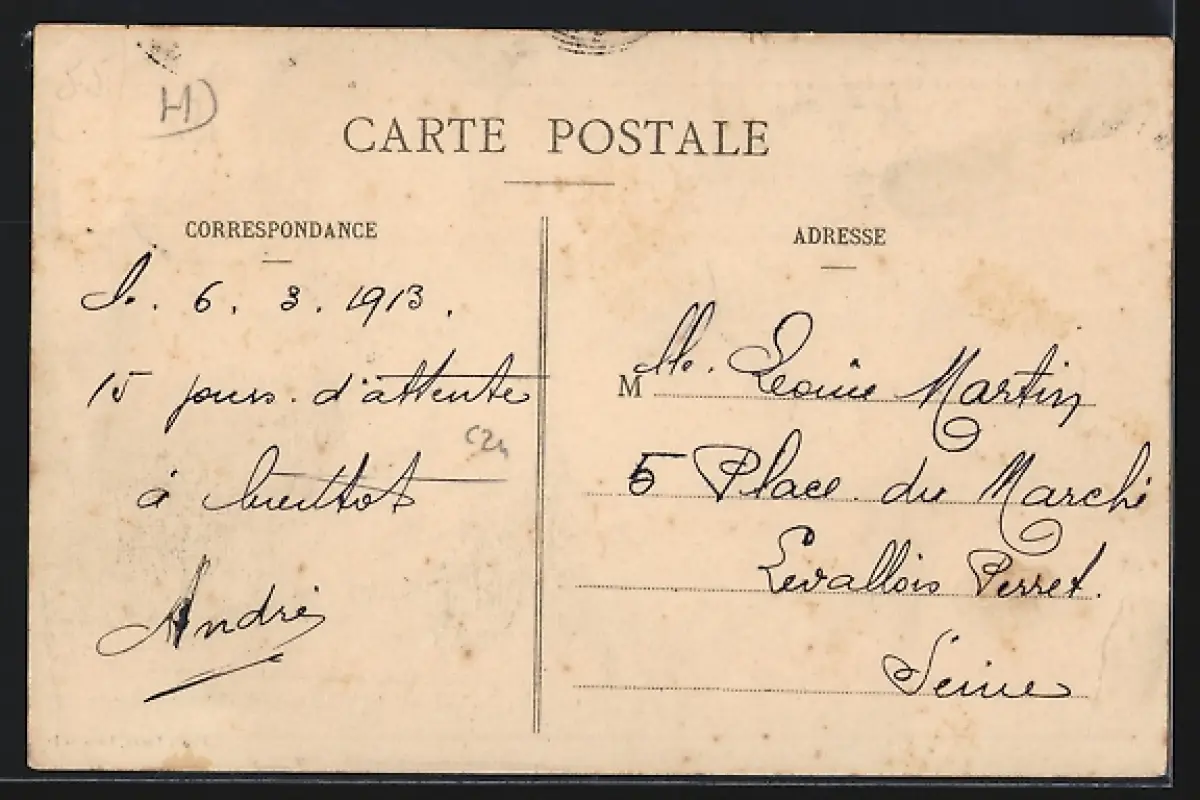 H)
CARTE POSTALE
CORRESPONDANCE
le. 6. 3. 1913.
15 jours. d'attente
à bientot
André
ADRESSE
Mlle. Martin
5 Place du Marché
Levallois Perret.
Seine